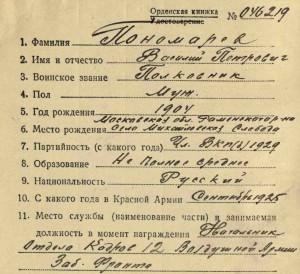 Орденская книжка
Удостоверение № 046219
1. Фамилия Пономарев
2. Имя и отчество Василий Петрович
3. Воинское звание Полковник
4. Пол Муж.
5. Год рождения 1904
Московская обл. Раменский р-н
6. Место рождения село Михайловская Слобода
7. Партийность (с какого года) Чл. ВКП(б) 1929
8. Образование Не полное среднее
9. Национальность Русский
10. С какого года в Красной Армии Сентябрь 1925
11. Место службы (наименование части) и занимаемая
должность в момент награждения Начальник
Отдела Кадров 12 Воздушной Армии
Заб. Фронта